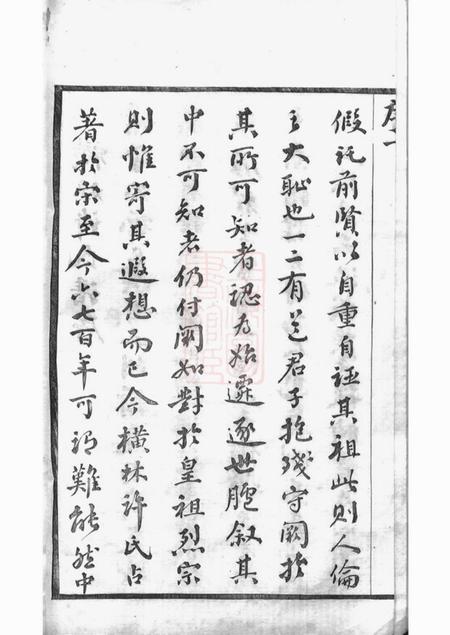 序一
假託前賢以自重自誣其祖此則人倫
之大恥也一二有道君子抱殘守闕於
其所可知者認為始遷逐世臚叙其
中不可知者仍付闕如對於皇祖烈宗
則惟寄其遐想而已今橫林許氏占
著於宗至今六七百年可謂難能然中